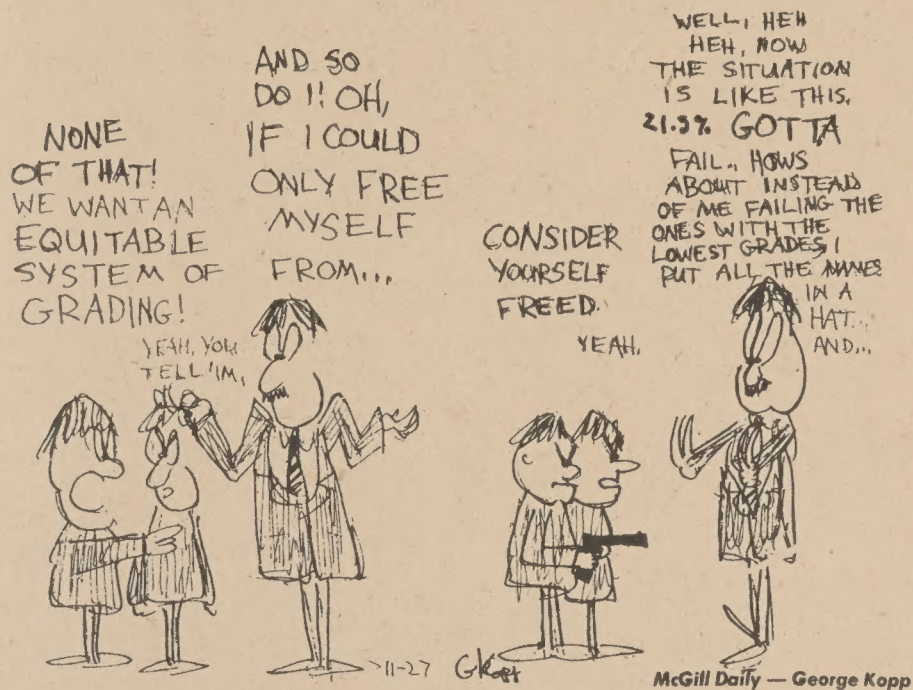 NONE
OF THAT!
WE WANT AN
EQUITABLE
SYSTEM OF
GRADING!
YEAH, YOU
TELL 'IM,
AND SO
DO I! OH,
IF I COULD
ONLY FREE
MYSELF
FROM...
CONSIDER
YOURSELF
FREED.
YEAH.
WELL, HEH
HEH, NOW
THE SITUATION
IS LIKE THIS.
21.3% GOTTA
FAIL., HOWS
ABOUT INSTEAD
OF ME FAILING THE
ONES WITH THE
LOWEST GRADES, I
PUT ALL THE NAMES
IN A
HAT..
AND...
11-27 GKopp
McGill Daily — George Kopp